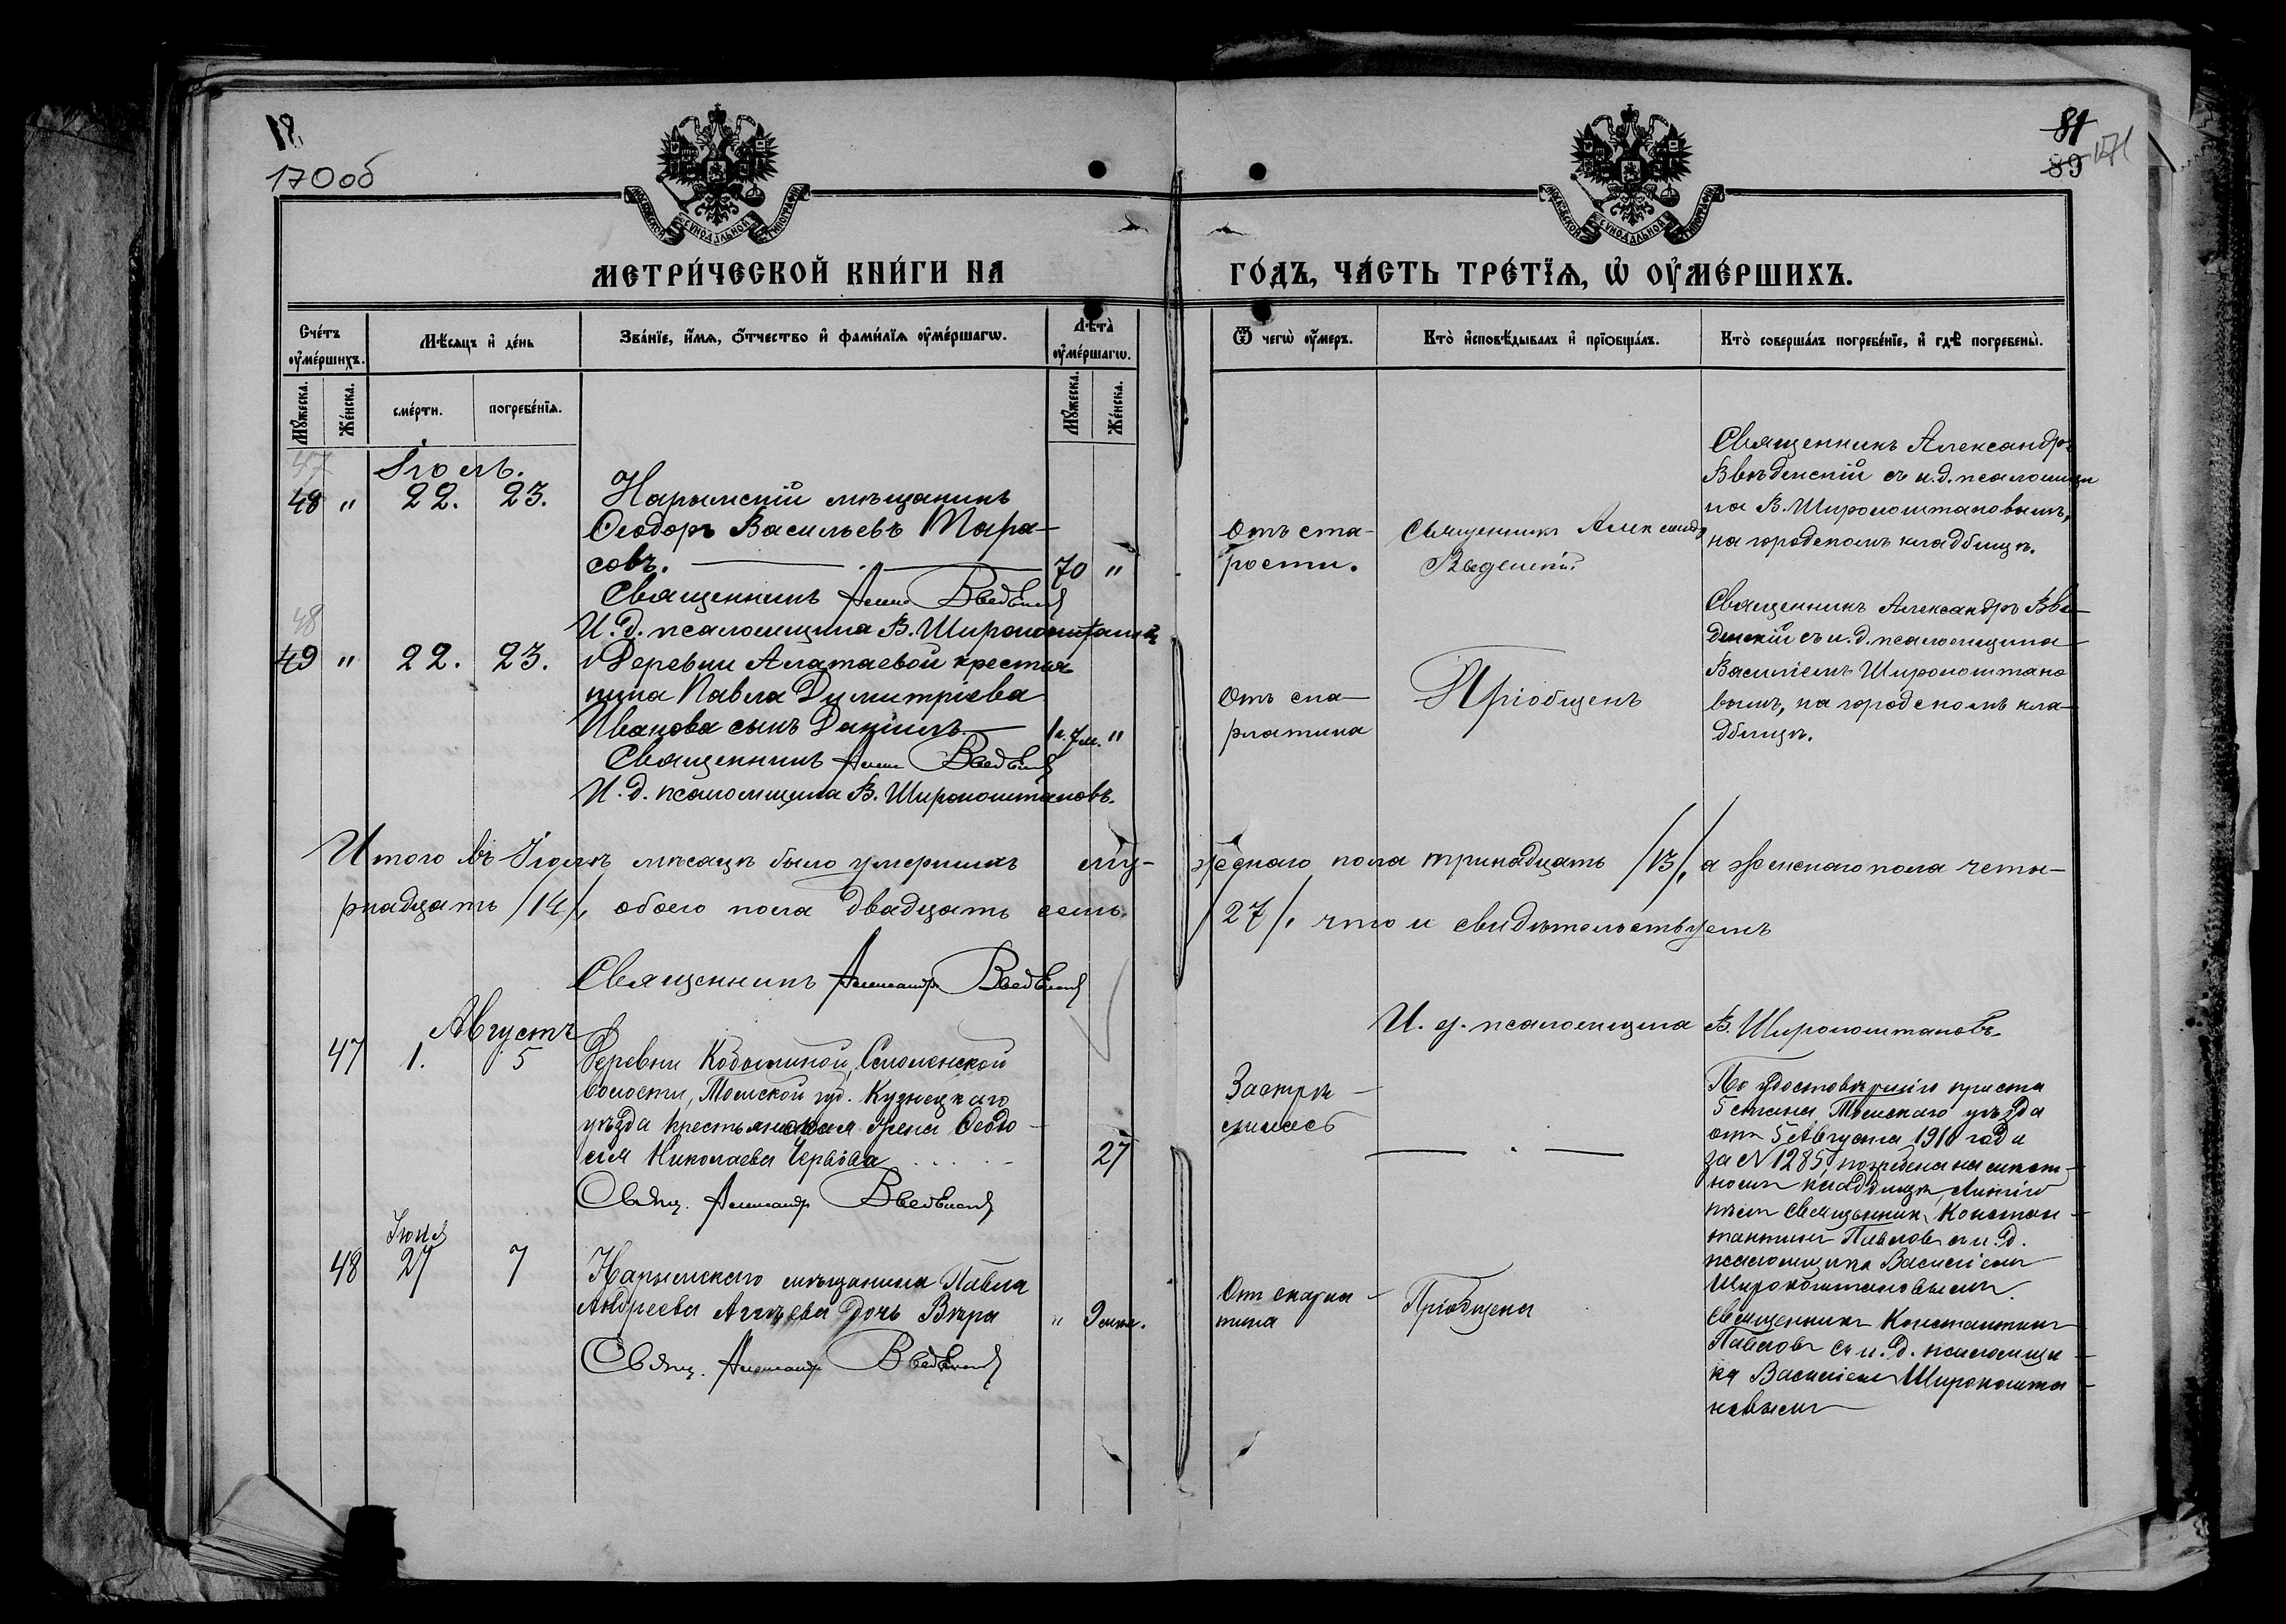 18.
170 об
81
89 171
МОСКОВСКОЙ СѴНОДАЛЬНОЙ ТИПОГРАФІИ
МОСКОВСКОЙ СѴНОДАЛЬНОЙ ТИПОГРАФІИ
МЕТРИ́ЧЕСКОЙ КНИ́ГИ НА ГО́ДЪ, ЧА́СТЬ ТРЕ́ТЇѦ, Ѡ҆ ОУ҆МЕ́РШИХЪ.
Сче́тъ оу҆ме́ршихъ.
Мꙋ́жеска. Же́нска.
Мѣ́сѧцъ и҆ де́нь
сме́рти. погребе́нїѧ.
Зва́нїе, и҆́мѧ, ѻ҆́тчество и҆ фами́лїѧ оу҆ме́ршагѡ.
Лѣ́та оу҆ме́ршагѡ.
Мꙋ́жеска. Же́нска.
Ѿ чегѡ̀ оу҆́меръ.
Кто̀ и҆сповѣ́дывалъ и҆ прїѻбща́лъ.
Кто̀ соверша́лъ погребе́нїе, и҆ гдѣ̀ погребены̀.
47
Іюль.
48 " 22. 23.
Нарымскій мѣщанинъ
Ѳеодоръ Васильевъ Тара-
совъ. 70 "
Священникъ Алекс Введенскій
И. д. псаломщика В. Широкоштановъ
Отъ ста-
рости.
Священникъ Александръ
Введенскій
Священникъ Александръ
Введенскій съ и. д. псаломщи
ка В. Широкоштановымъ,
на городскомъ кладбищѣ.
48
49 " 22. 23.
Деревни Алатаевой крестья
нина Павла Димитріева
Иванова сынъ Даніилъ 1 г. 7 м. "
Священникъ Алекс Введенскій
И. д. псаломщика В. Широкоштановъ.
Отъ ска-
рлатина
Пріобщенъ
Священникъ Александръ Вве-
денскій съ и. д. псаломщика
Василіемъ Широкоштано
вымъ, на городскомъ кла-
дбищѣ.
Итого въ Іюлѣ мѣсяцѣ было умершихъ му- жескаго пола тринадцать /13/, а женскаго пола четы-
рнадцать /14/, обоего пола двадцать семь /27/, что и свидѣтельствуемъ
Священникъ Александръ Введенскій
И. д. псаломщика В. Широкоштановъ.
Августъ
47 1. 5
Деревни Кобылиной, Смоленской
волости, Томской губ. Кузнецкаго
уѣзда крестьянская жена Ѳеодо-
сія Николаева Червова 27
Свящ. Александръ Введенскій
Застрѣ-
лилась
По удостовѣренію приста
5 стана Томскаго уѣзда
отъ 5 Августа 1910 года
за № 1285, погребена на мѣст-
номъ кладбищѣ,
Священникъ Констан-
тинъ Павловъ съ и. д.
псаломщика Василіемъ
Широкоштановымъ.
Іюля
48 27 7
Нарымскаго мѣщанина Павла
Андреева Аггѣева дочь Вѣра " 9 мѣс.
Свящ. Александръ Введенскій
Отъ скарла-
тина
Пріобщена
Священникъ Константинъ
Павловъ съ и. д. псаломщи-
ка Василіемъ Широкошта-
новымъ